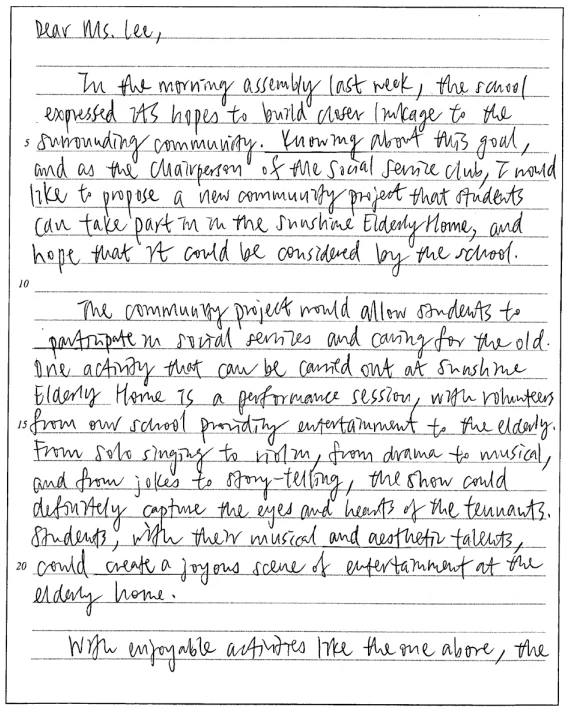 Dear Ms. Lee,
In the morning assembly last week, the school
expressed its hopes to build closer linkage to the
5 surrounding community. Knowing about this goal,
and as the Chairperson of the Social Service Club, I would
like to propose a new community project that students
can take part in in the Sunshine Elderly Home, and
hope that it could be considered by the school.
10
The community project would allow students to
participate in social services and caring for the old.
One activity that can be carried out at Sunshine
Elderly Home is a performance session, with volunteers
15 from our school providing entertainment to the elderly.
From solo singing to violin, from drama to musical,
and from jokes to story-telling, the show could
definitely capture the eyes and hearts of the tennants.
Students, with their musical and aesthetic talents,
20 could create a joyous scene of entertainment at the
elderly home.
With enjoyable activities like the one above, the